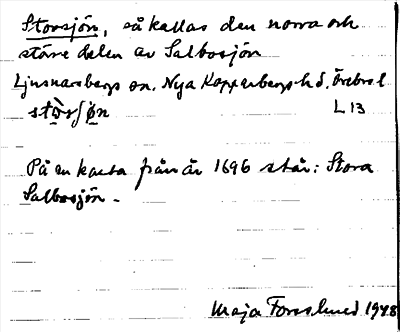 Storsjön, så kallas den norra och
större delen av Salbosjön
Ljusnarsbergs sn. Nya Kopparbergs hd. Örebro l
stòrſøn L 13
På en karta från år 1696 står: Stora
Salbosjön.
Maja Forsslund 1948